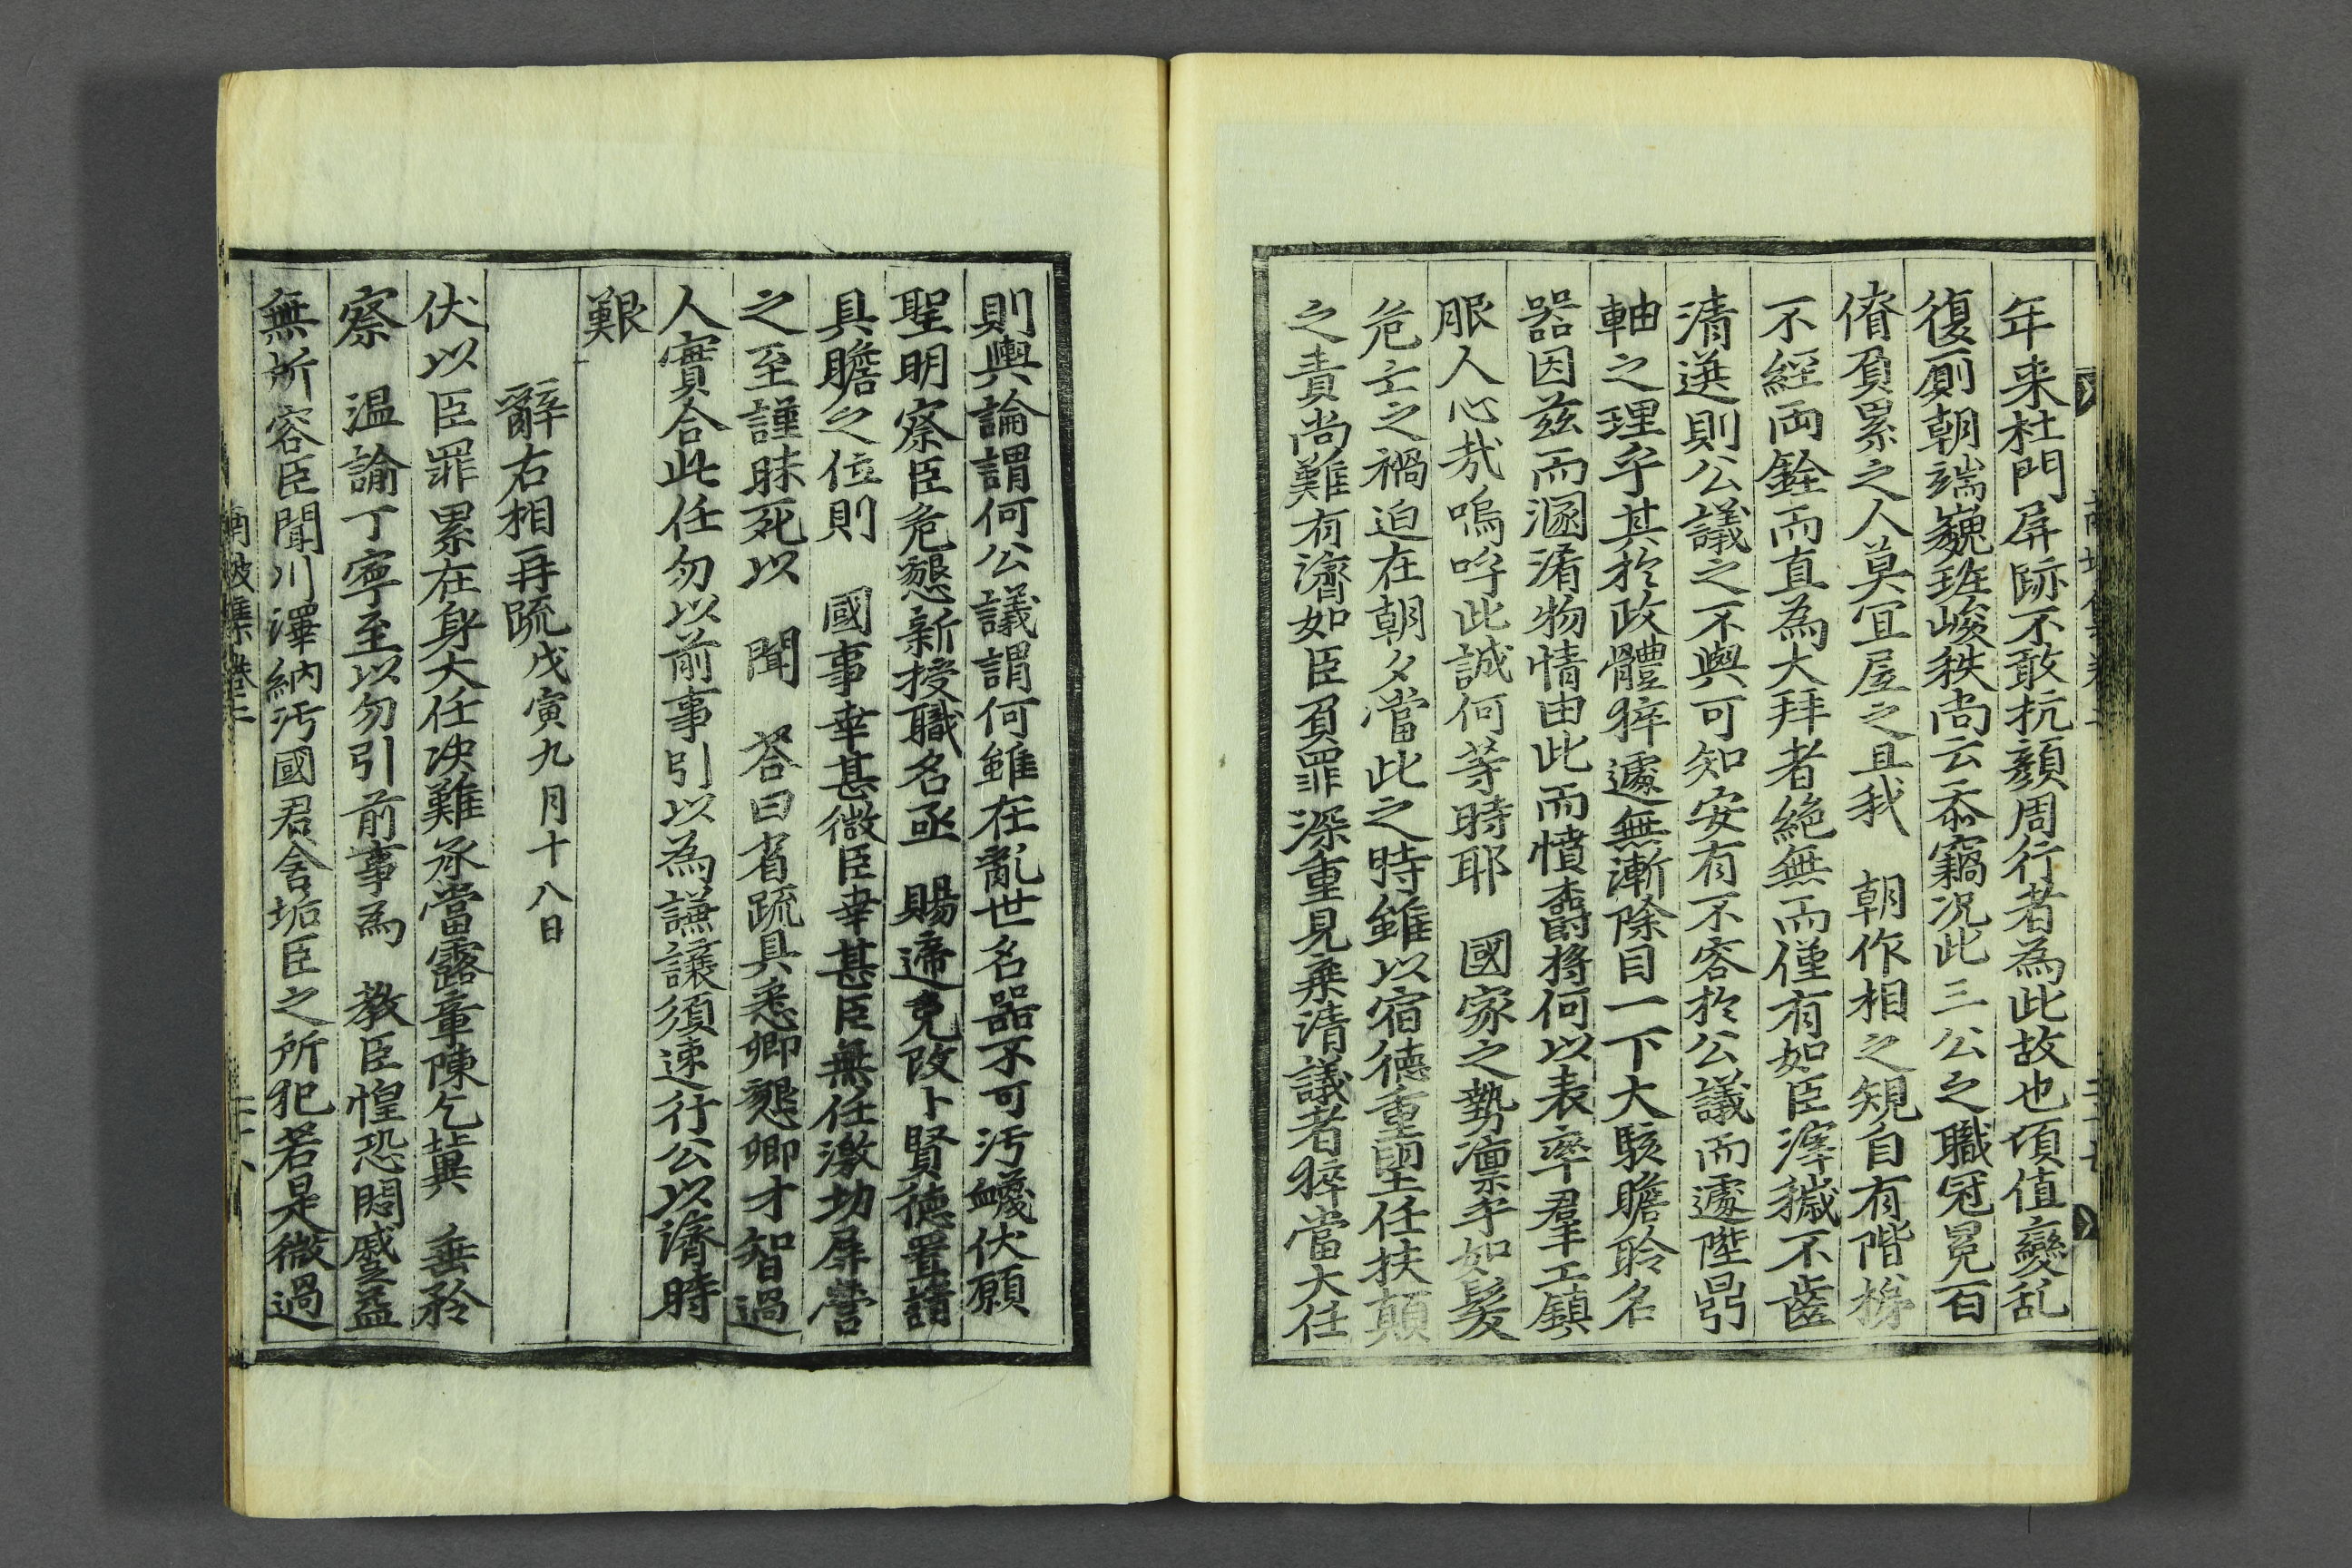 年来杜門屏跡不敢抗顔周行者為此故也頃值變乱
復厠朝端巍班峻秩尚云忝竊况此三公之職冠冕百
僚負累之人莫冝居之且我 朝作相之䂓自有階梯
不經两銓而直為大拜者絶無而僅有如臣滓穢不齒
清選則公議之不與可知安有不容於公議而遽陞鼎
軸之理乎其於政體猝遽無漸除目一下大駭瞻聆名
器因兹而溷淆物情由此而憤欝将何以表率羣工鎮
服人心㢤嗚呼此誠何等時耶 國家之勢凛乎如髮
危亡之禍迫在朝夕當此之時雖以宿德重望任扶顛
之責尚難有濟如臣負罪深重見棄清議者猝當大任
則輿論謂何公議謂何雖在亂世名器不可汚衊伏願
聖明察臣危懇新授職名亟 賜遞免改卜賢德置諸
具瞻之位則 國事幸甚微臣幸甚臣無任激切屏營
之至謹昧死以 聞 荅曰省疏具悉卿懇卿才智過
人實合此任勿以前事引以為謙讓須速行公以濟時
艱
辭右相再疏戊寅九月十八日
伏以臣罪累在身大任决難承當露章陳乞冀 垂矜
察 温諭丁寧至以勿引前事為 教臣惶恐悶蹙益
無所容臣聞川澤納汚國君含垢臣之所犯若是微過
南坡集卷之二